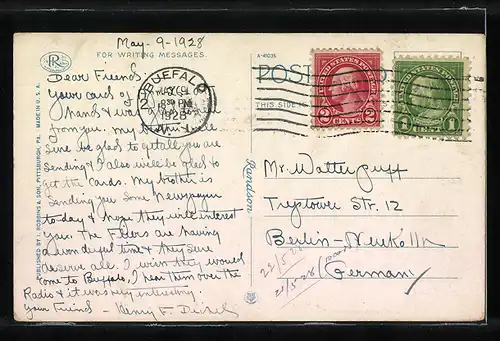 May - 9 - 1928
FOR WRITING MESSAGES.
A-41035
POST
THIS SIDE
Dear Friends
Your cards of
hands & was
from you. My
sure be glad to get all you are
sending & I also will be glad to
get the cards. My brother is
sending you some Newspaper
to-day & hope they will interest
you. The Fliers are having
a wonderful time & they sure
deserve all. I wish they would
come to Buffalo, I hear them over the
Radio & it was very interesting.
Your Friend - Henry F.
PUBLISHED BY I. ROBBINS & SON, PITTSBURGH, PA. MADE IN U. S. A.
BUFFALO
MAY 9
1928
N. Y.
UNITED STATES POSTAGE
2 CENTS 2
UNITED STATES POSTAGE
1 CENT 1
Mr. Walter
Treptower Str. 12
Berlin-Neukölln
(Germany)
22/5.28
21/5.28